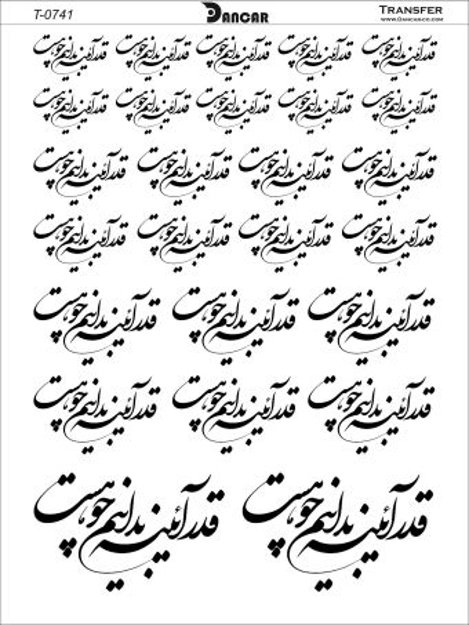 T-0741 DANCAR TRANSFER
WWW.DANCARCO.COM
قدر آئینه بدانیم چو هست قدر آئینه بدانیم چو هست قدر آئینه بدانیم چو هست قدر آئینه بدانیم چو هست قدر آئینه بدانیم چو هست
قدر آئینه بدانیم چو هست قدر آئینه بدانیم چو هست قدر آئینه بدانیم چو هست قدر آئینه بدانیم چو هست قدر آئینه بدانیم چو هست
قدر آئینه بدانیم چو هست قدر آئینه بدانیم چو هست قدر آئینه بدانیم چو هست قدر آئینه بدانیم چو هست
قدر آئینه بدانیم چو هست قدر آئینه بدانیم چو هست قدر آئینه بدانیم چو هست قدر آئینه بدانیم چو هست
قدر آئینه بدانیم چو هست قدر آئینه بدانیم چو هست قدر آئینه بدانیم چو هست
قدر آئینه بدانیم چو هست قدر آئینه بدانیم چو هست قدر آئینه بدانیم چو هست
قدر آئینه بدانیم چو هست قدر آئینه بدانیم چو هست